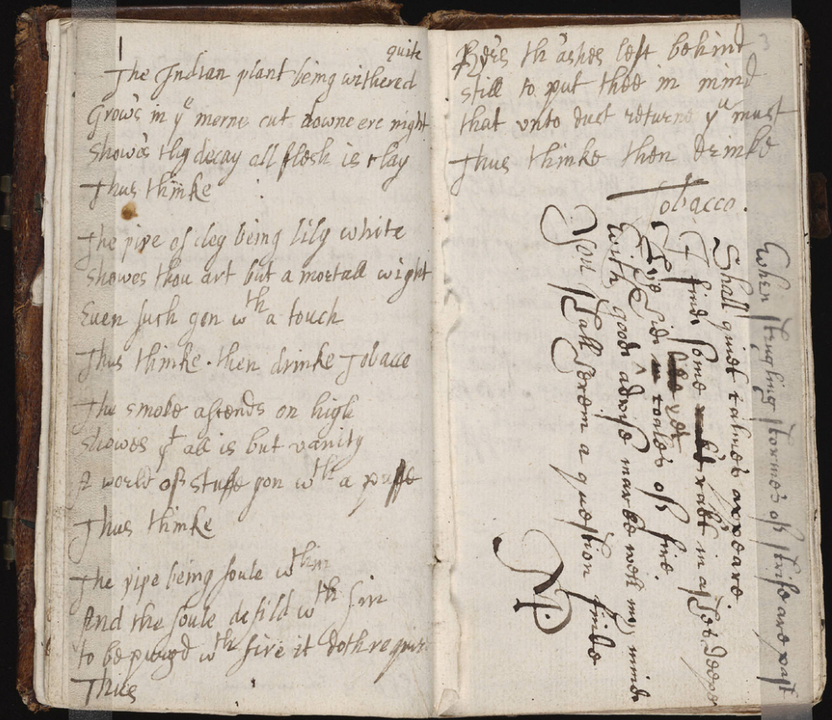 quite
The Indian plant being withered
Grow's in yᵉ morne cut downe ere night
Showes thy decay all flesh is clay
Thus thinke
The pipe of cley being lily white
Showes thou art but a mortall wight
Euen such gon wᵗʰ a touch
Thus thinke. then drinke Tobacco
The smoke asends on high
Showes yᵗ all is but vanity
A world of stuffe gon wᵗʰ a puffe
Thus thinke
The pipe being foule wᵗʰin
And the soule defild wᵗʰ sin
to be purged wᵗʰ fire it doth requir
Thus
3
th ashes left behind
still to put thee in mind
that unto dust returne yᵘ must
Thus thinke then drinke
Tobacco.
When strugling stormes of strife are past
Shall quiet calmes appeare.
I finde some rakt in ashes deepe
coales of fire.
With good advise marke well my minde
You shall herein a question finde